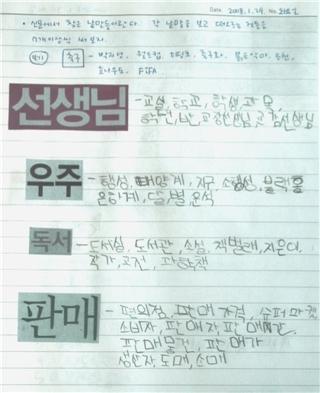 Date. 2008. 1. 29. No. 화요일
• 신문에서 찾은 낱말들이란다. 각 낱말을 보고 떠오르는 것들을
7개이상씩 써 보자.
보기 축구 - 박지성, 월드컵, 축구화, 붉은악마, 호나우도, FIFA
선생님 - 교실, 학교, 학생, 과목,
학년, 반, 교장선생님, 교감선생님
우주 - 행성, 태양계, 지구, 소행성, 블랙홀
은하계, 달, 별, 운석
독서 - 도서실, 도서관, 소설, 책벌레, 지은이,
작가, 고전, 과학책
판매 - 편의점, 판매가격, 슈퍼마켓
소비자, 판매자, 판매
판매물건, 판매가
생산자, 도매, 소매